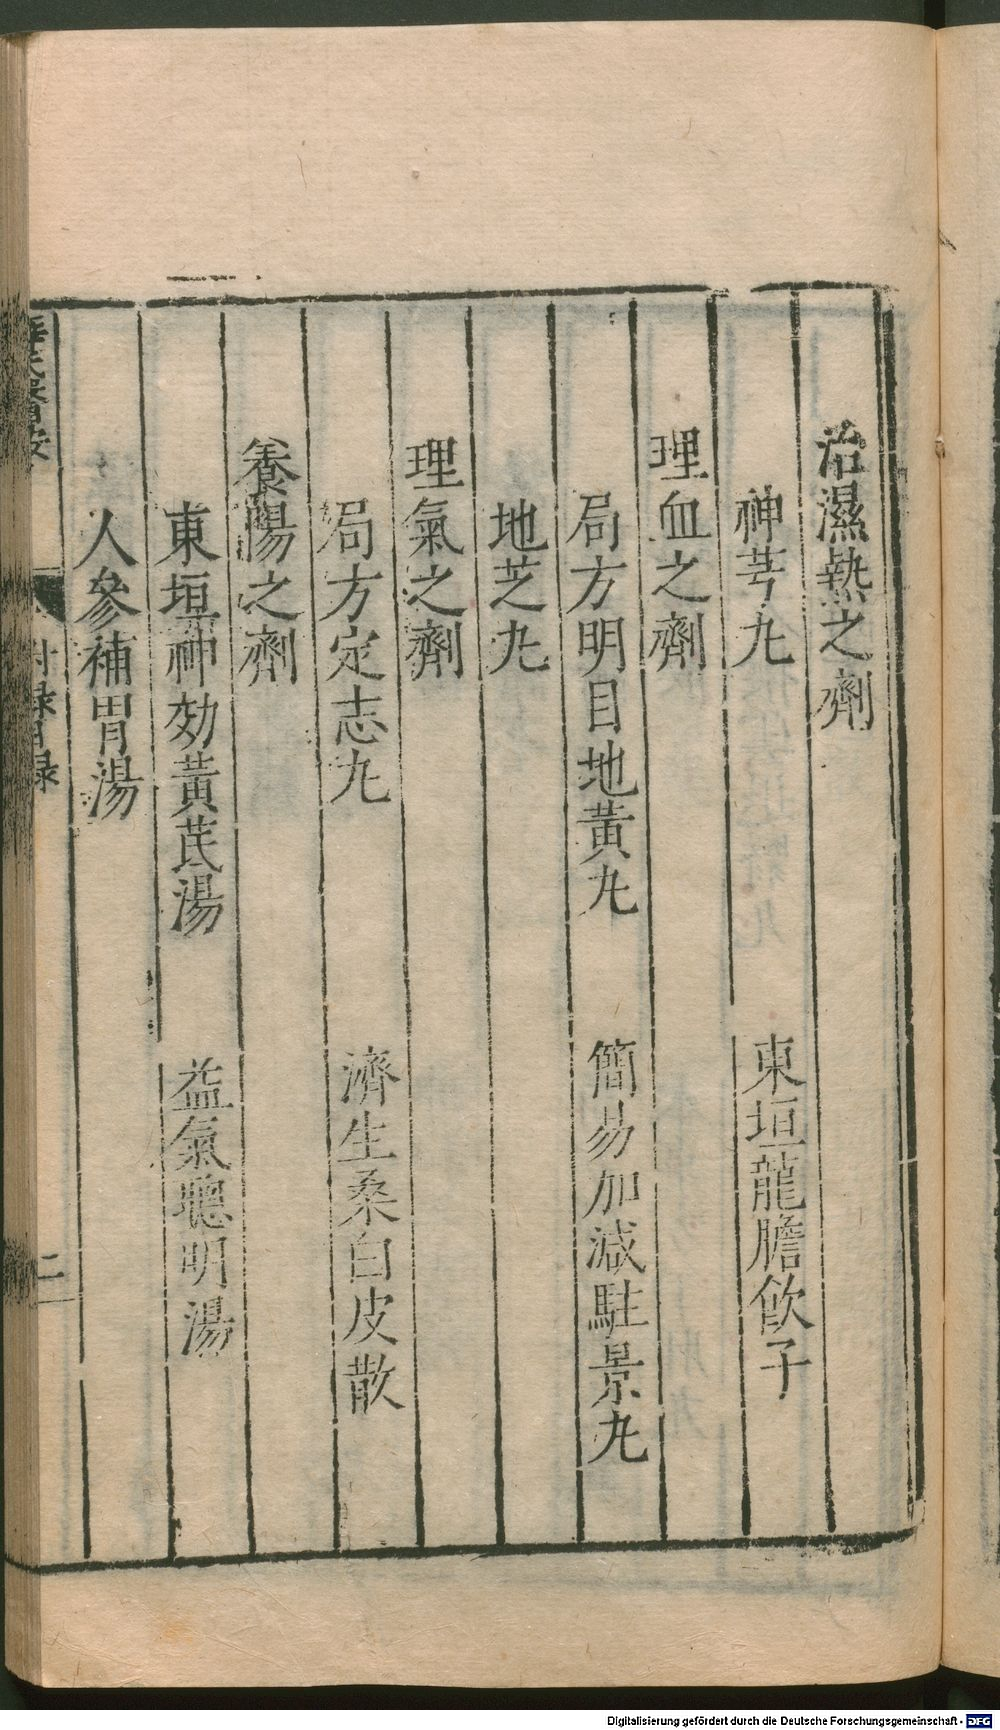 治濕熱之劑
神芎丸　東垣龍膽飲子
理血之劑
局方明目地黃丸　簡易加減駐景丸
地芝丸
理氣之劑
局方定志丸　濟生桑白皮散
養陽之劑
東垣神効黃芪湯　益氣聰明湯
人參補胃湯
附録目録　二
Digitalisierung gefördert durch die Deutsche Forschungsgemeinschaft - DFG